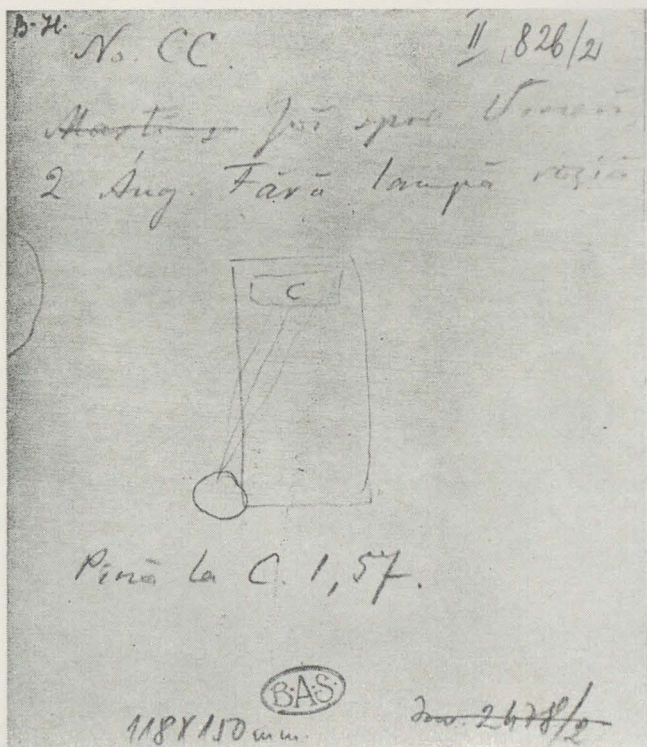 B-H.
No. CC. II, 826/2
Joi spre Vineri
2 Aug. Fără lampă roșie
C
Pină la C. 1,57.
B.A.S.
118X150 mm.
Inv. 2478/2